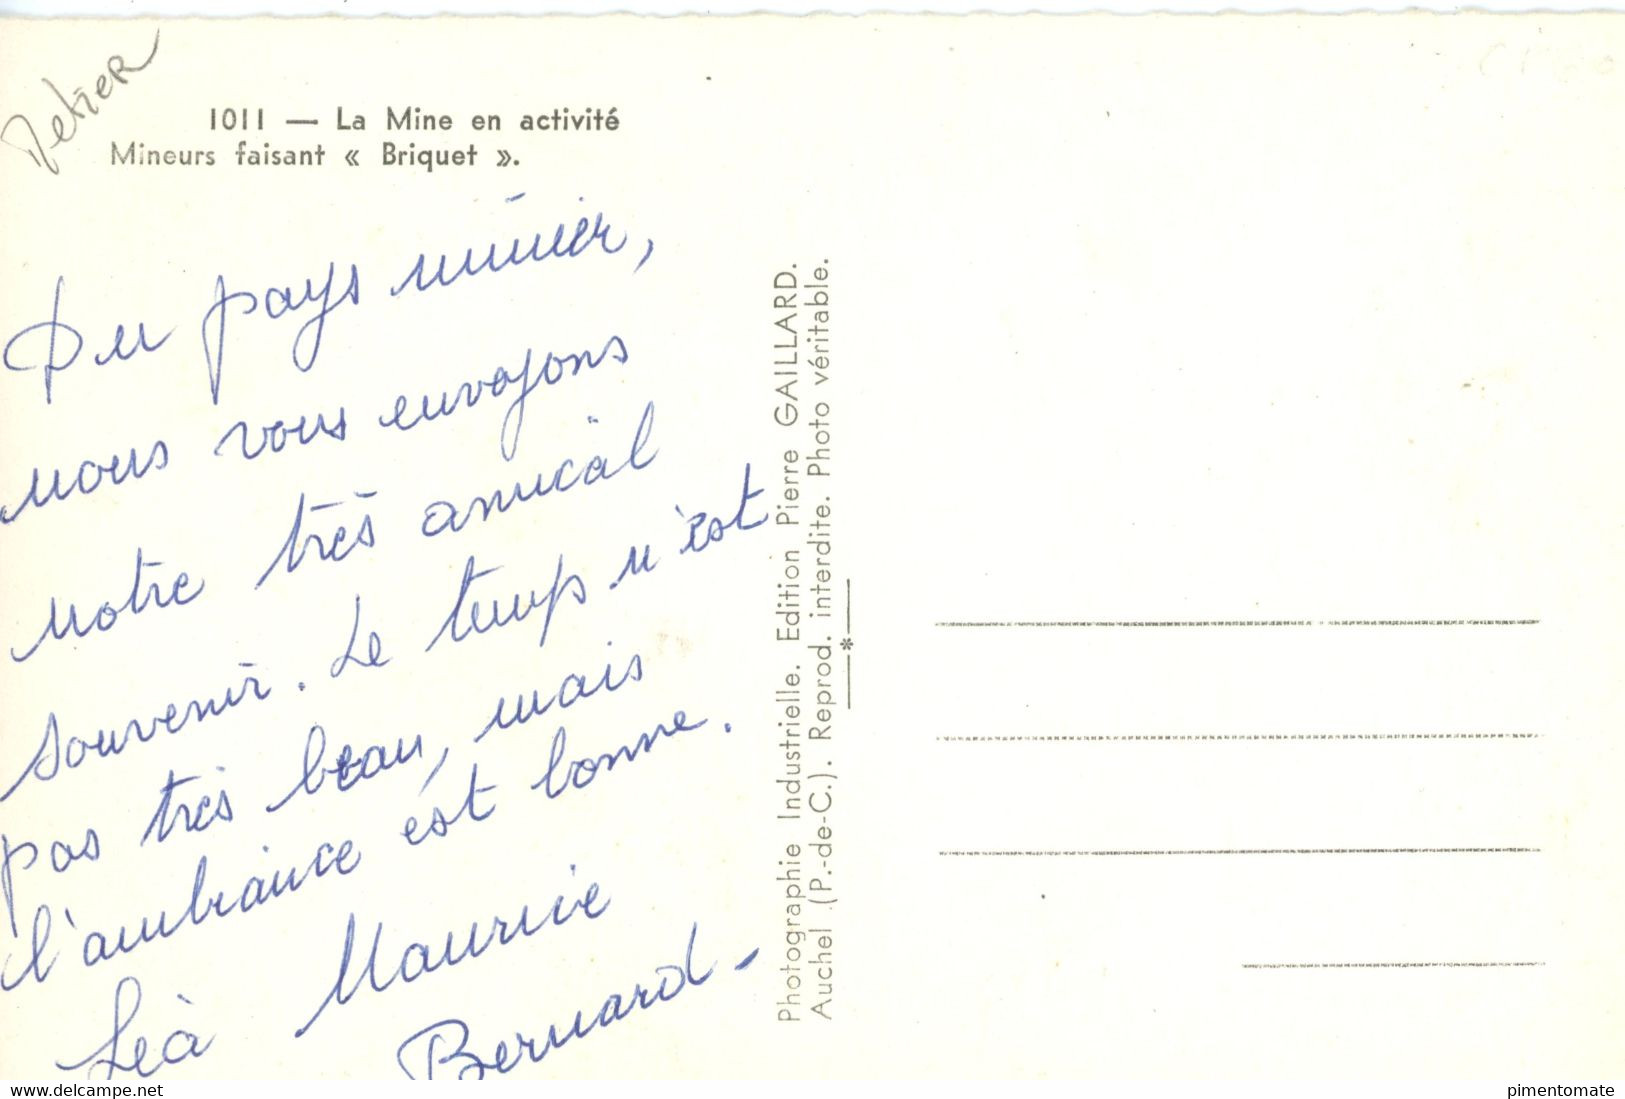 Metier
1011 — La Mine en activité
Mineurs faisant « Briquet ».
Du pays minier,
nous vous envoyons
notre très amical
souvenir. Le temps n'est
pas très beau, mais
l'ambiance est bonne.
Léa Maurice
Bernard -
Photographie Industrielle. Edition Pierre GAILLARD.
Auchel (P.-de-C.). Reprod. interdite. Photo véritable.
*
delcampe.net
pimentomate